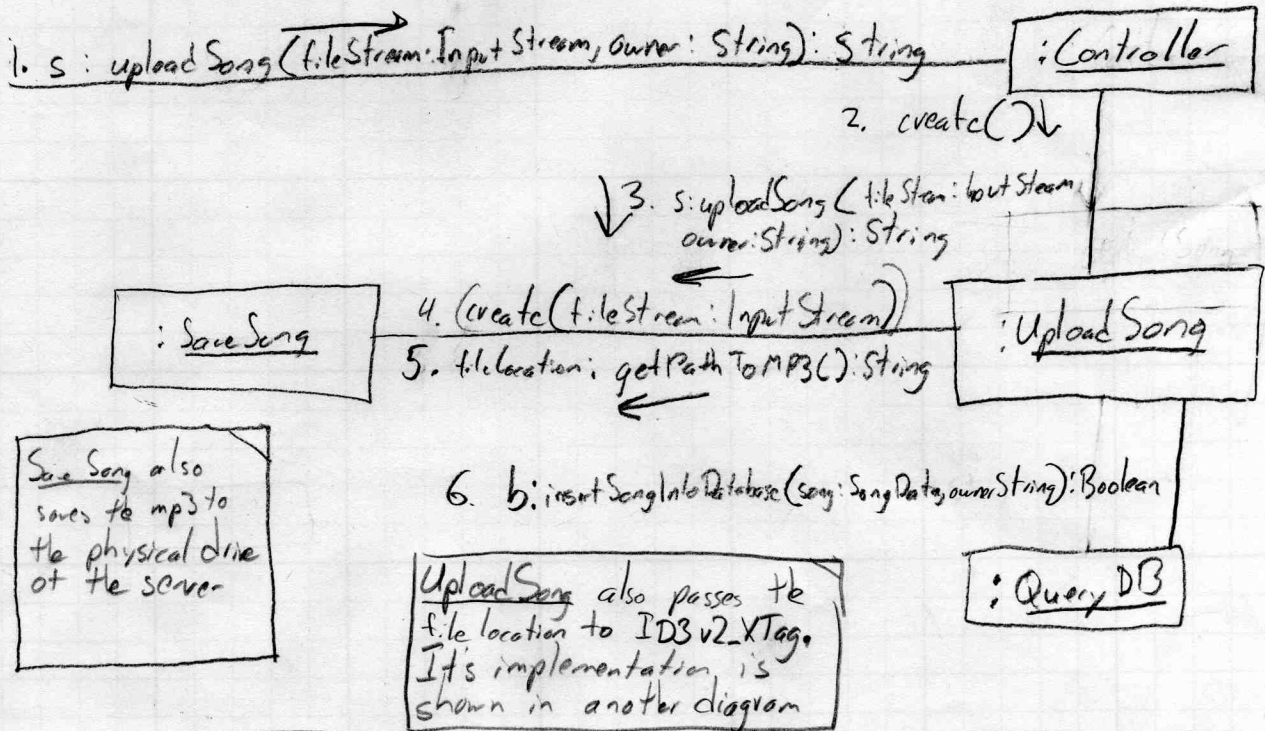 1. s: uploadSong(fileStream:InputStream, owner: String): String
:Controller
2. create()
3. s:uploadSong(fileSteam:InputSteam,
owner:String): String
4. (create(fileStream: InputStream))
:SaveSong
:UploadSong
5. filelocation: getPathToMP3(): String
6. b: insertSongIntoDatabase(song:SongData, ownerString): Boolean
:QueryDB
Save Song also
saves the mp3 to
the physical drive
of the server
UploadSong also passes the
file location to ID3v2_XTag.
It's implementation is
shown in another diagram